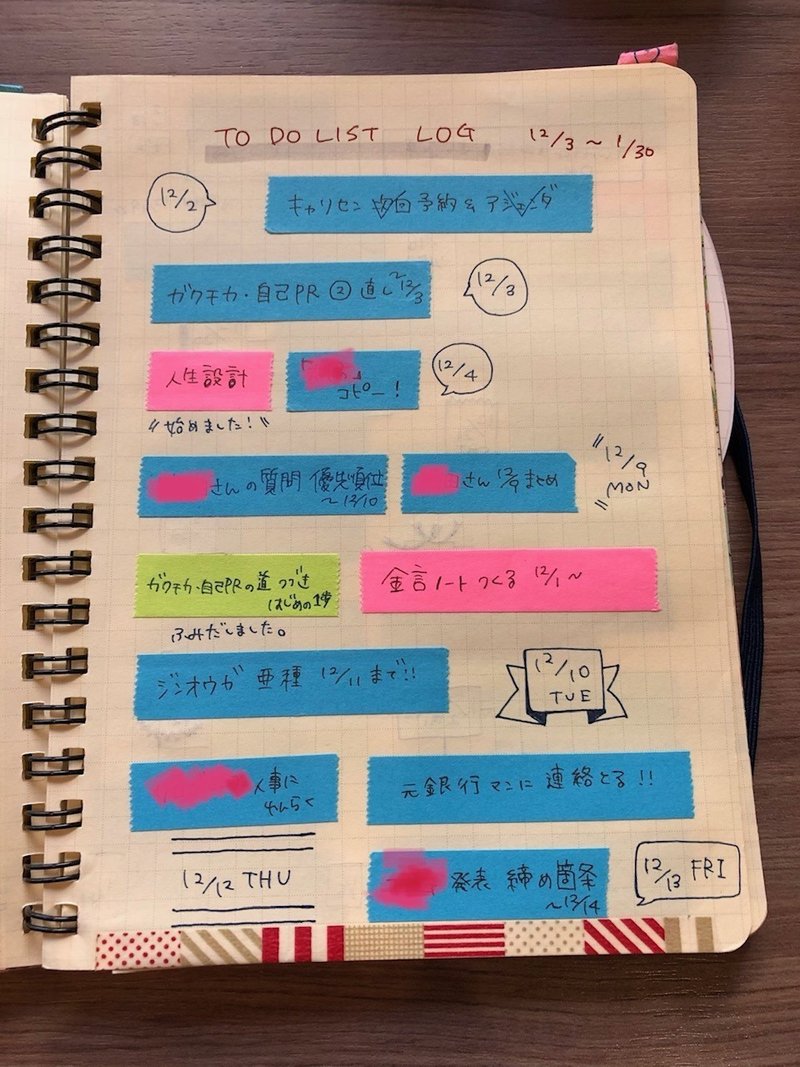 TO DO LIST LOG 12/3 ~ 1/30
12/2
キャリセン 予約 & アジェンダ
ガクチカ・自己PR ② 直し ~12/3
12/3
人生設計
コピー!
12/4
"始めました!"
さんの質問 優先順位
~12/10
さん 12/9 まとめ
12/9
MON
ガクチカ・自己PRの道 つづき
はじめの1歩
ふみだしました。
金言ノートつくる 12/1~
ジンオウガ 亜種 12/11まで!!
12/10
TUE
人事に
れんらく
元銀行マンに 連絡とる!!
12/12 THU
発表 締め箇条
~12/14
12/13 FRI